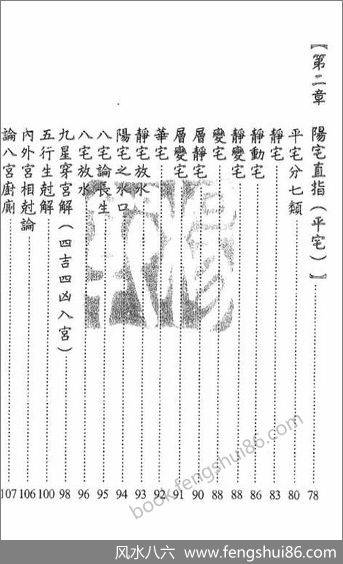 【第二章 陽宅直指（平宅）】 78
平宅分七類 80
靜宅 83
靜動宅 86
靜變宅 88
變宅 88
層靜宅 90
層變宅 91
華宅 92
靜宅放水 93
陽宅之水口 94
八宅論長生 95
八宅放水 96
九星穿宮解（四吉四凶入宮） 98
五行生尅解 100
內外宮相尅論 106
論八宮廚廁 107
book.fengshui86.com
风水八六 www.fengshui86.com